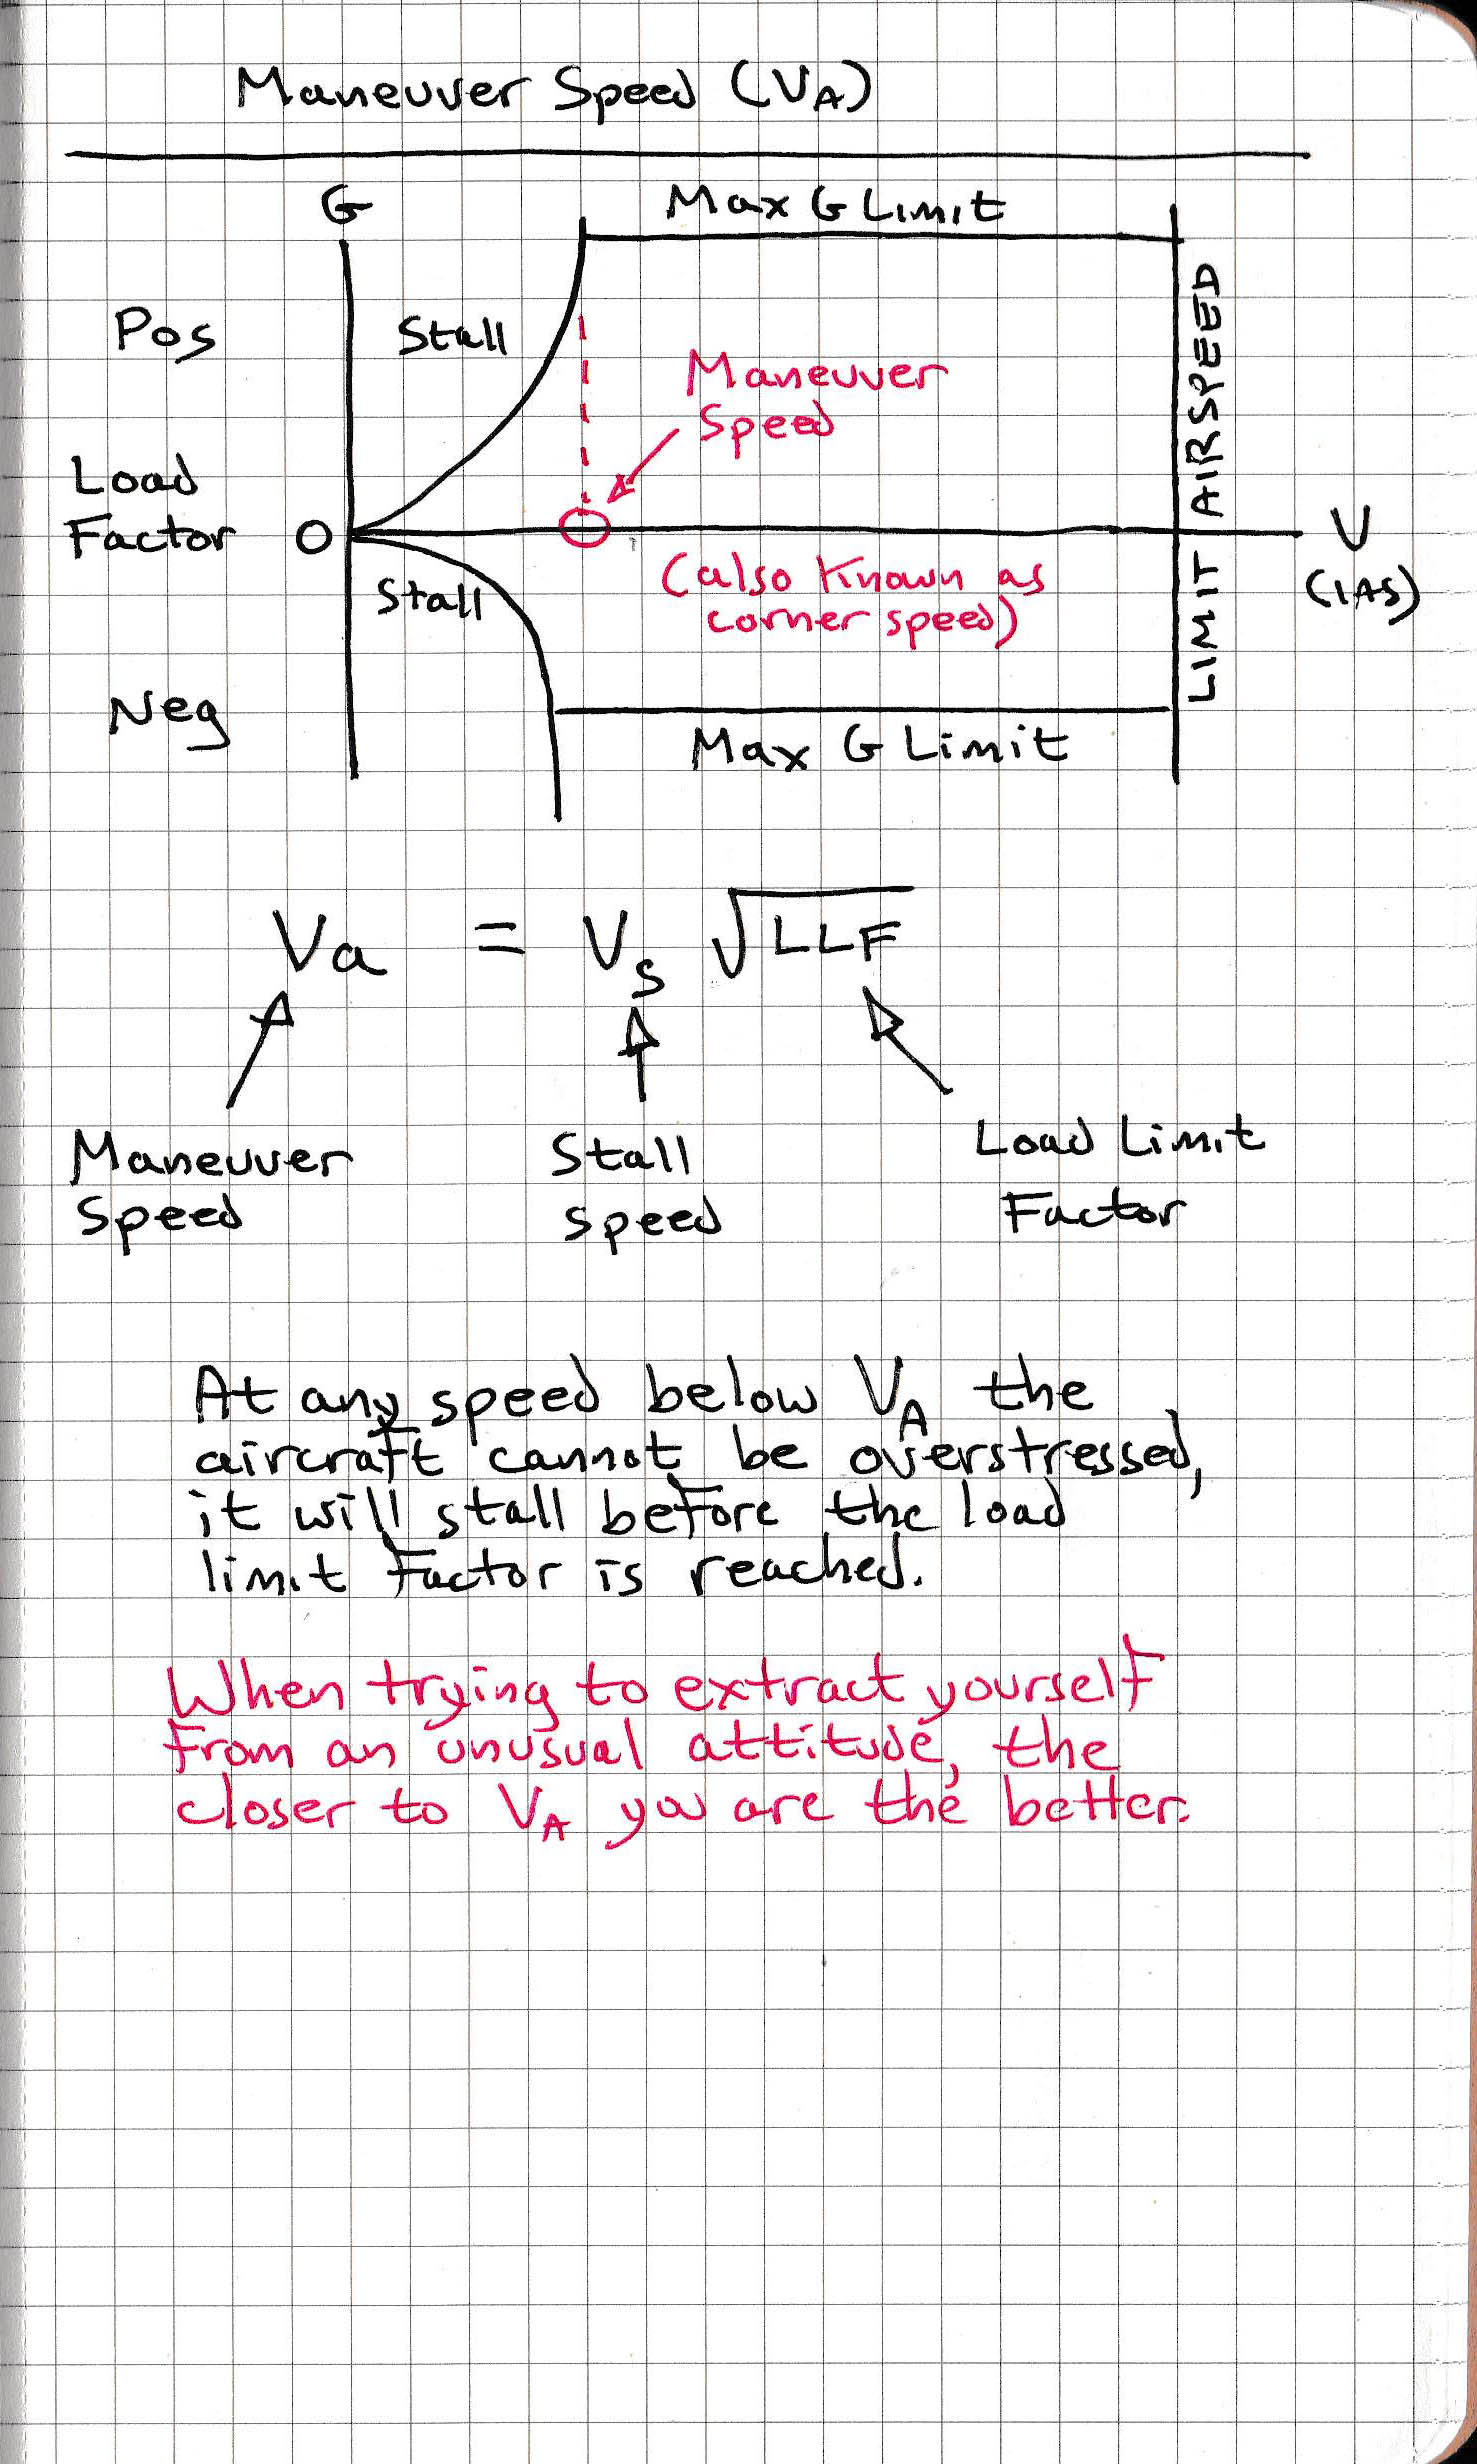 Maneuver Speed (VA)
G
Max G Limit
Pos
Stall
Maneuver
Speed
LIMIT AIRSPEED
Load
Factor
O
V
(IAS)
(also known as
corner speed)
Stall
Neg
Max G Limit
Va = Vs √LLF
Maneuver
Speed
Stall
Speed
Load Limit
Factor
At any speed below VA the
aircraft cannot be overstressed,
it will stall before the load
limit factor is reached.
When trying to extract yourself
from an unusual attitude, the
closer to VA you are the better.